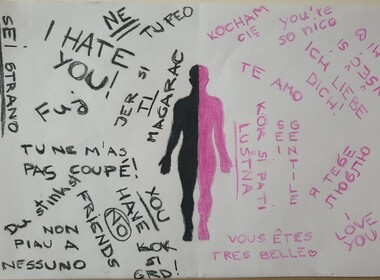 SEI STRANO
I HATE
YOU!
NE
TU PEO
JER SI
TI
MAGARAC
TU NE M'AS
PAS COUPÉ!
stinks
FRIENDS
YOU
HAVE
NO
NON
PIAU A
NESSUNO
KOK
SI
GRD!
KOCHAM
CIĘ
you're
so nice
ICH LIEBE
DICH!
TE AMO
KOK SI PATI
LUŠTNA
SEI
GENTILE
Я ТЕБЕ
ЛЮБЛЮ
I LOVE
YOU
VOUS ÊTES
TRES BELLE♡